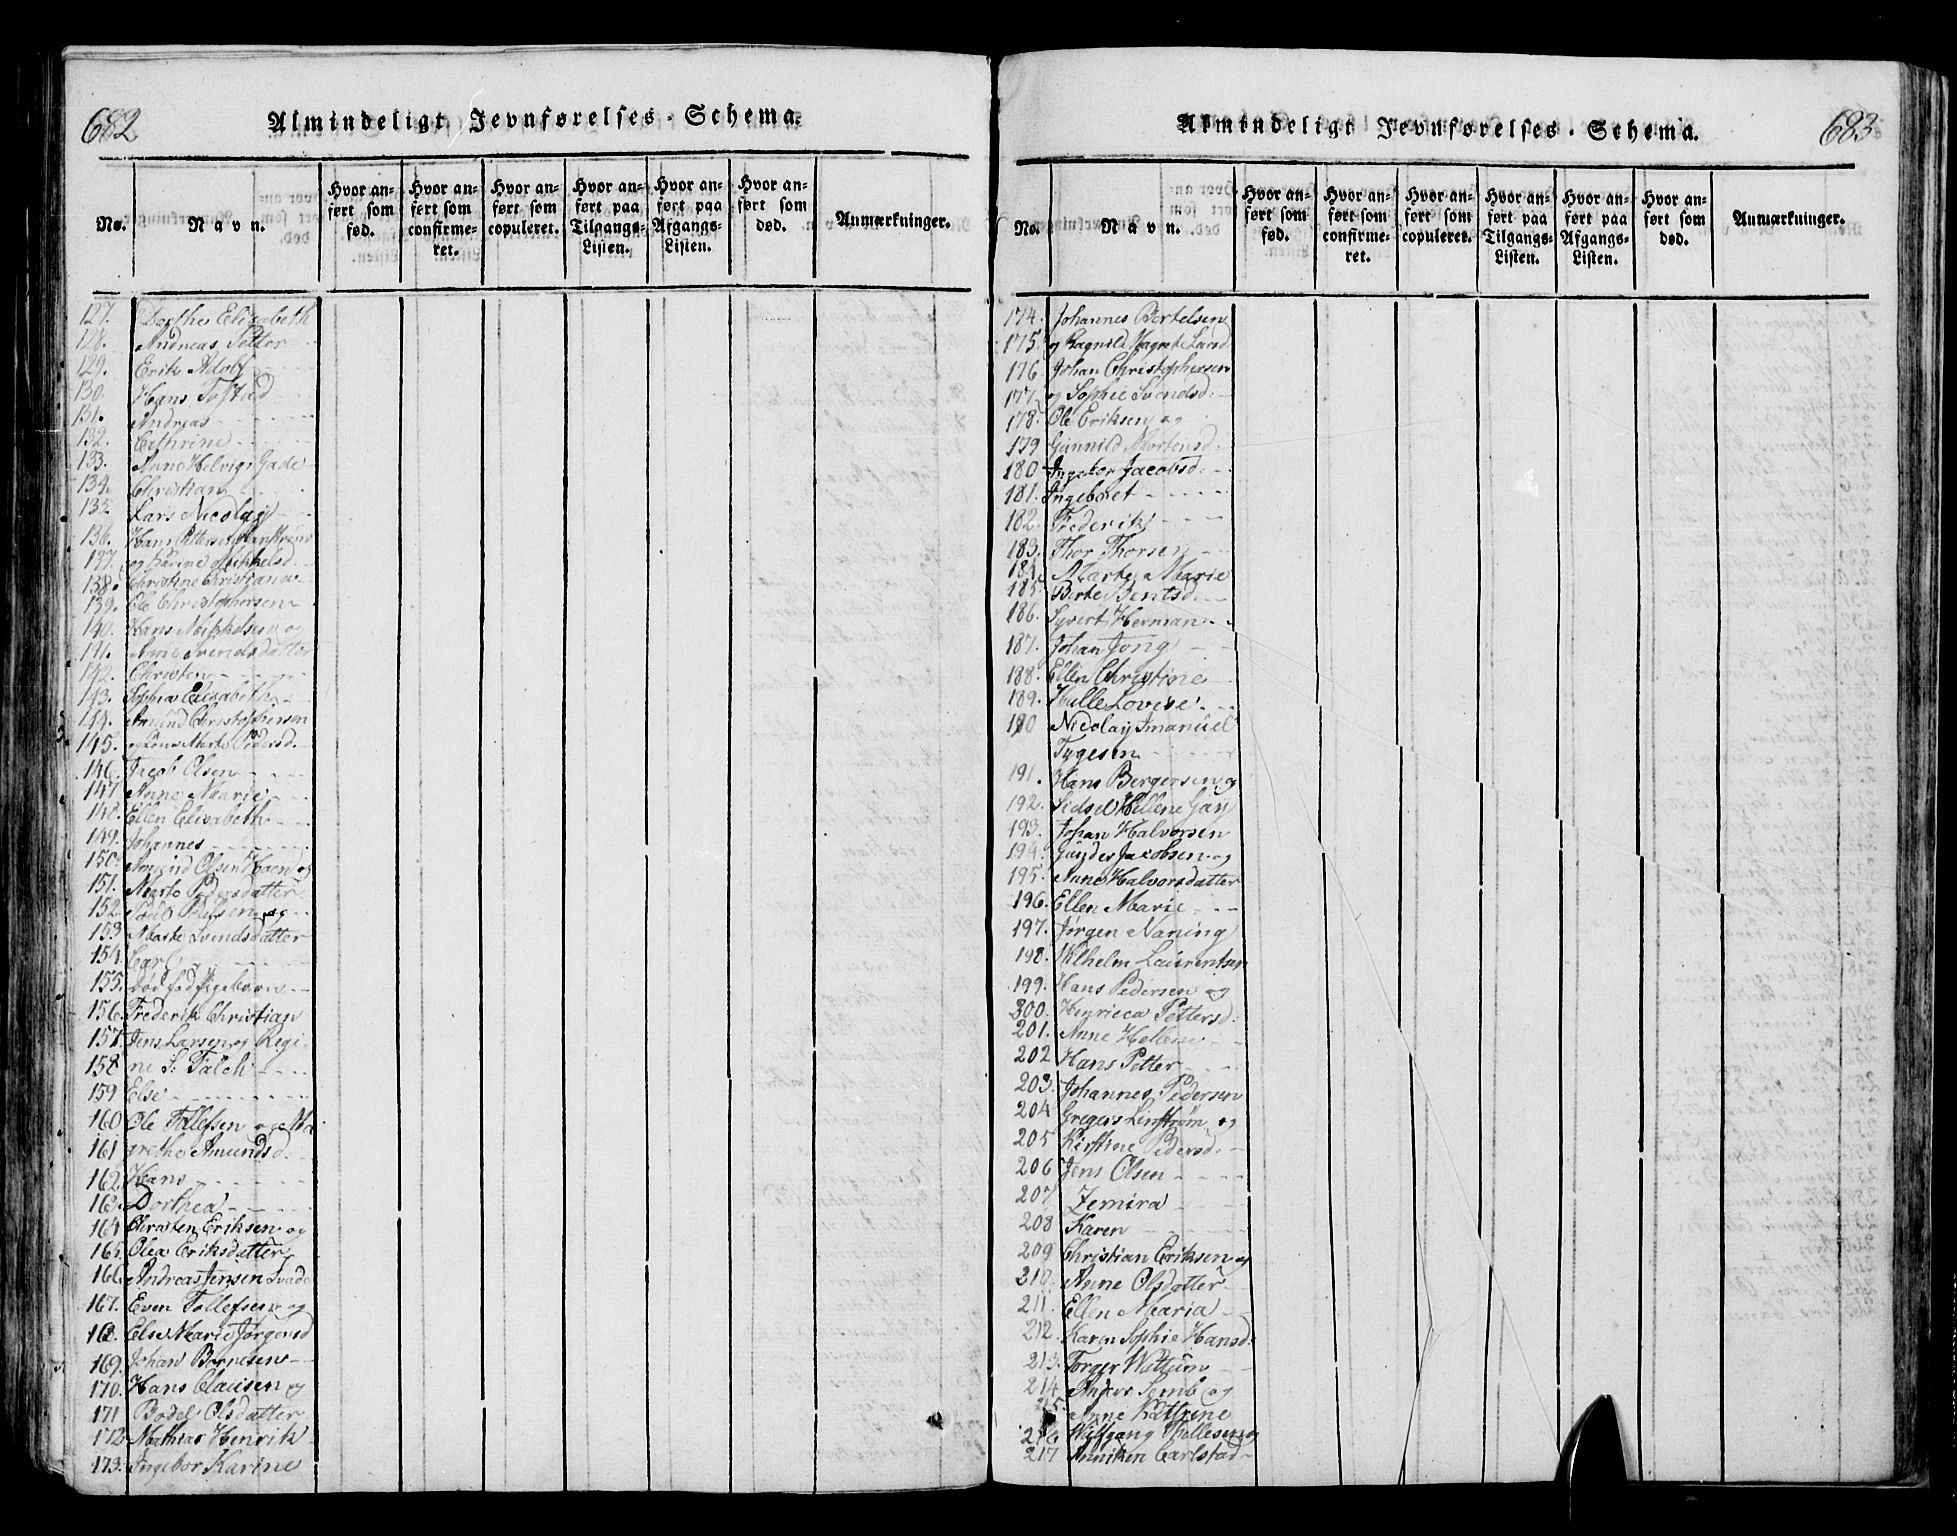 682
Almindeligt Jevnførelses-Schema.
No.
Navn.
Hvor anført som fød.
Hvor anført som confirmeret.
Hvor anført som copuleret.
Hvor anført paa Tilgangs-Listen.
Hvor anført paa Afgangs-Listen.
Hvor anført som død.
Anmærkninger.
127. Dorthe Elisabeth
128. Andreas Petter
129. Erik Adolf
130. Hans Tofstad
131. Andreas
132. Cathrine
133. Anne Helvig Gade
134. Christian
135 Lars Nicolay
136. Hans Petterson
137. og Karine Mikkelsd.
138. Christine Christiana
139. Ole Christophersen
140. Hans Mikkelsen og
141. Anne Svendsdatter
142. Christen
143. Sophia Elisabeth
144. Amund Christophersen
145. og Marte Pedersd.
146. Jacob Olsen
147 Anne Marie
148. Ellen Elisabeth
149. Johannes
150. Amund Olsen Hoen og
151. Marte Pedersdatter
152 og
153 Marte Svendsdatter
154 Carl
155. dødfød Pigebarn
156. Frederik Christian
157. Jens Larsen og Regi
158 ne S. Falch
159 Else
160 Ole Tollefsen og Ma
161 grethe Amundsd.
162. Hans
163. Dorthea
164 Christen Eriksen og
165. Olea Eriksdatter
166. Andreas Jensen
167. Even Tollefsen og
168 Else Marie Jørgensd
169. Johan Berntsen
170. Hans Clausen og
171 Bodel Olsdatter
172 Mathias Henrik
173. Ingebor Karine
Almindeligt Jevnførelses-Schema.
683
No.
Navn.
Hvor anført som fød.
Hvor anført som confirmeret.
Hvor anført som copuleret.
Hvor anført paa Tilgangs-Listen.
Hvor anført paa Afgangs-Listen.
Hvor anført som død.
Anmærkninger.
174. Johannes Bertelsen
175 og Ragnild Magrete Larsd
176 Johan Christophersen
177 og Sophie Svendsd.
178. Ole Eriksen og
179 Gunnild Mortensd.
180 Ingebor Jacobsd.
181. Ingeboret
182. Frederik
183. Thor Thorsen
184 Marte Marie
185. Berte Bentsd.
186. Syvert Herman
187. Johan Jong
188. Ellen Christine
189. Hulle Lovise
190 Nicolay Imanuel
Tygesen
191. Hans Bergersen og
192. Sidsel Hellene Gay
193. Johan Halvorsen
194. Gunder Jacobsen og
195. Anne Halvorsdatter
196. Ellen Marie
197. Jørgen Naning
198. Wilhelm Laurentsen
199. Hans Pedersen og
300. Henricca Pettersd.
201. Anne Hellene
202 Hans Petter
203. Johannes Pedersen
204 Gregers Linstrøm og
205 Kirstine Pedersd.
206 Jens Olsen
207 Zemira
208 Karen
209 Christian Eriksen og
210. Anne Olsdatter
211. Ellen Maria
212. Karen Sophie Hansd.
213. Torger Wettum
214 Anders Semb og
215 Anne Kattrine
216 Wulfgang Thellesen og
217 Anniken Carlstad